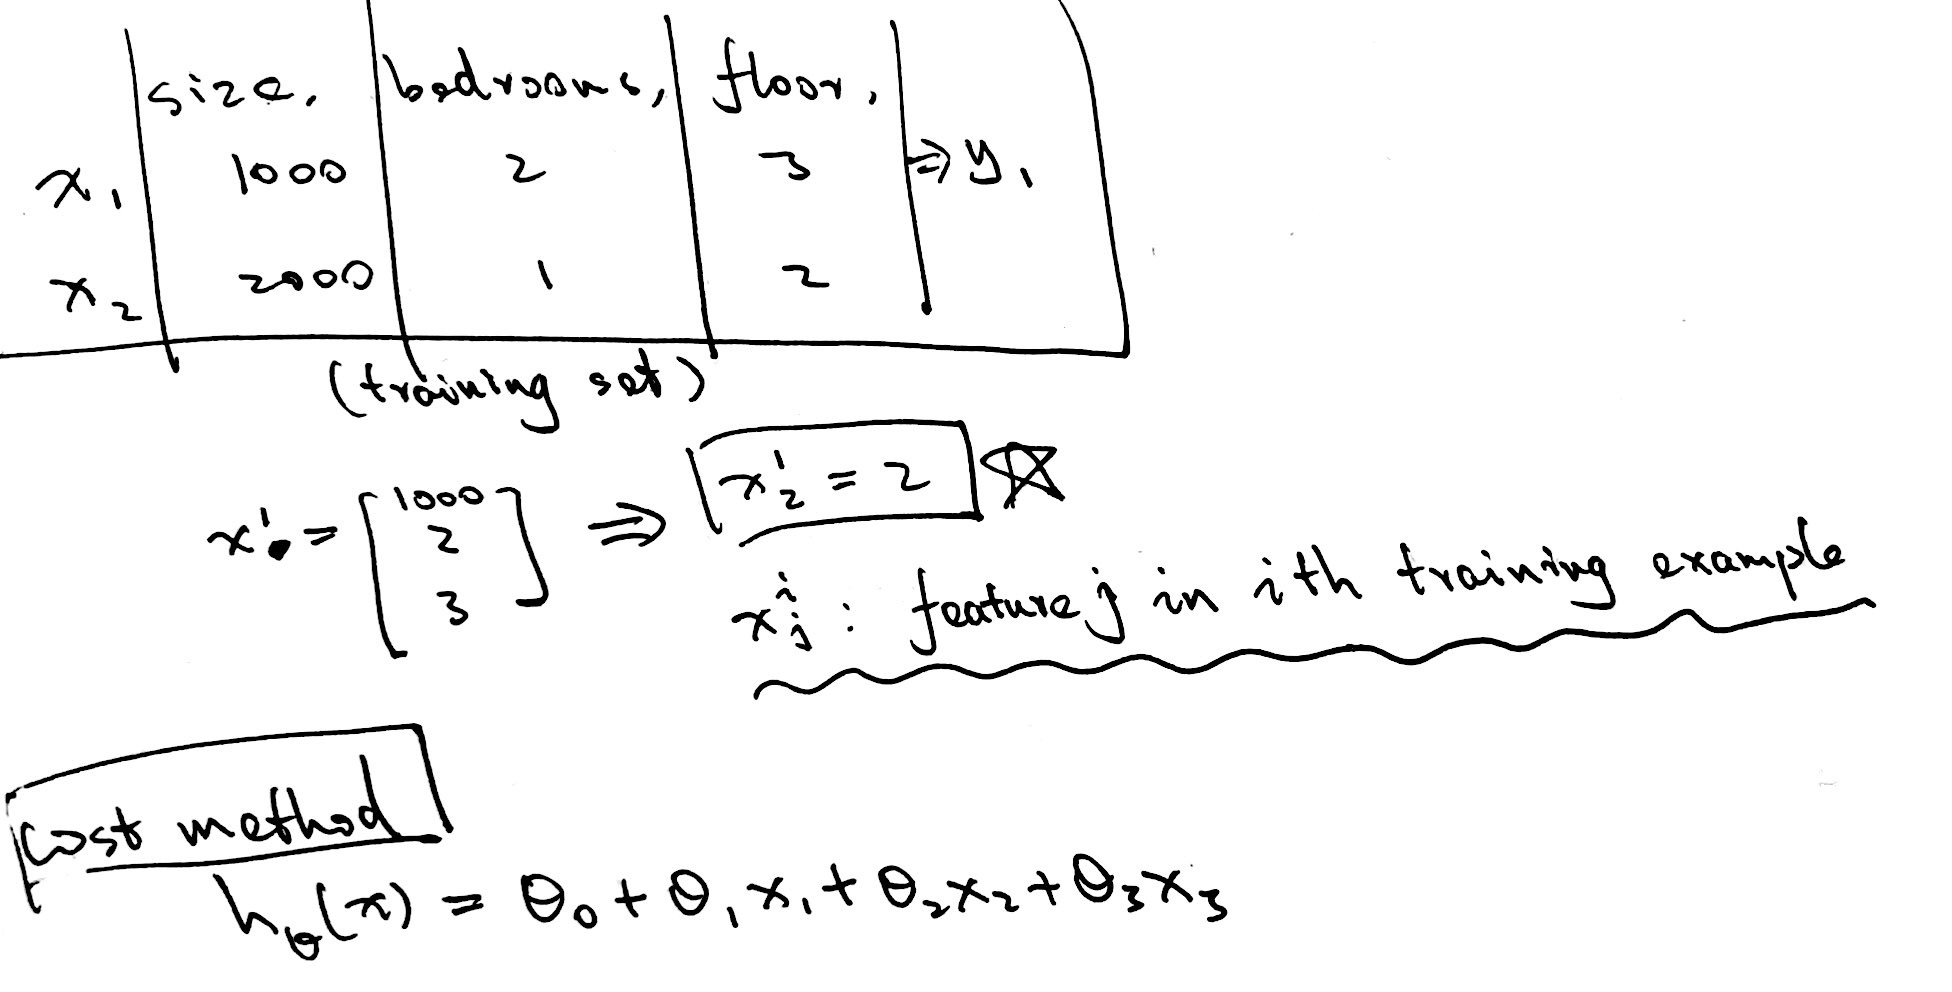 size, bedrooms, floor,
x₁ 1000 2 3 ⇒ y₁
x₂ 2000 1 2
(training set)
x¹ = [1000 2 3] ⇒ x₂¹ = 2
xⱼⁱ : feature j in ith training example
cost method
h_θ(x) = θ₀ + θ₁x₁ + θ₂x₂ + θ₃x₃